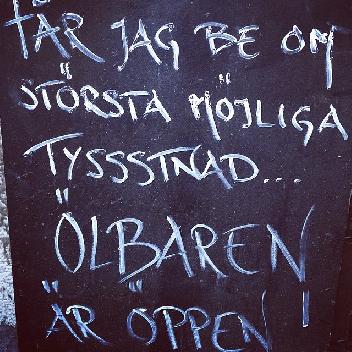 FÅR JAG BE OM
STÖRSTA MÖJLIGA
TYSSSTNAD...
ÖLBAREN
ÄR ÖPPEN!